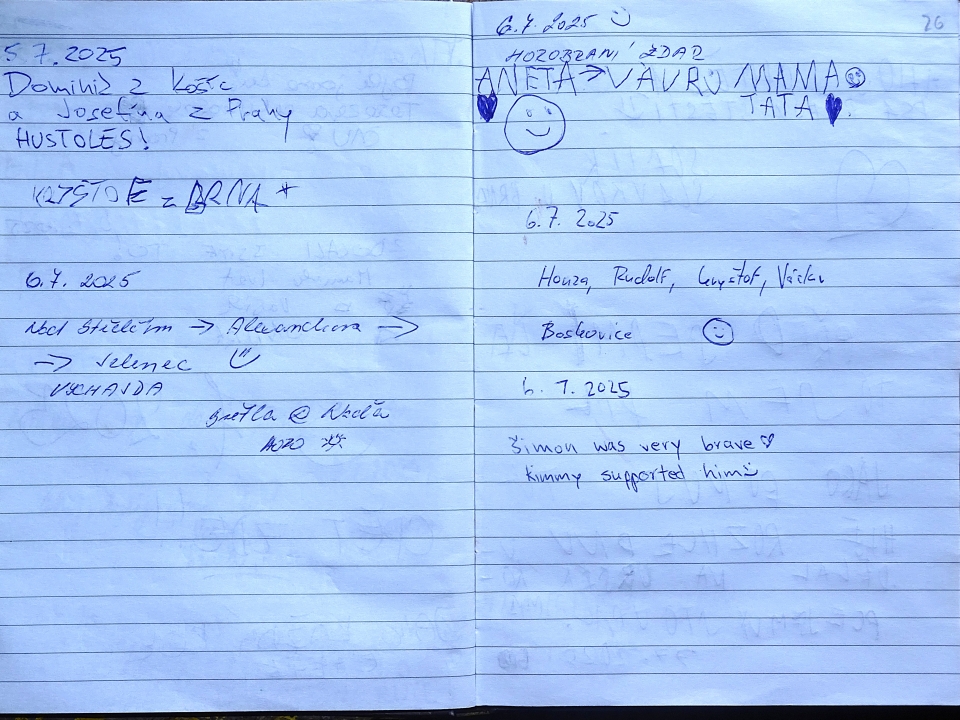 5.7.2025
Dominik z Košic
a Josefína z Prahy
HUSTOLES!
KRYŠTOF z BRNA *
6.7. 2025
Nad Střelčím → Alexandrova →
→ Jelenec
VYCHAJDA
Světla @ Naďa
AOZO
26
6.7.2025
HOROBRANÍ ZDAR
ANETA → VAVRŮ MAMA
TATA
6.7. 2025
Honza, Rudolf, Kryštof, Václav
Boskovice
6.7.2025
Šimon was very brave
kimmy supported him